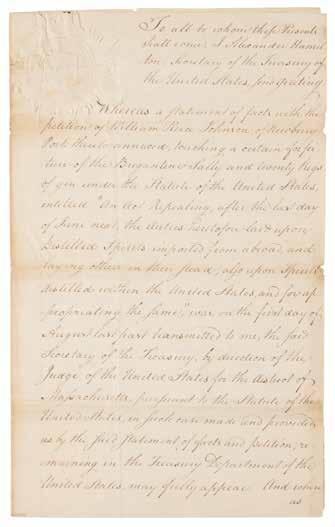 To all to whom these Presents
shall come, I Alexander Hamil
ton, Secretary of the Treasury of
the United States, send greeting
Whereas a statement of facts with the
petition of William Johnson of Newbury
Port thereto annexed, touching a certain forfei
ture of the Brigantine Sally and twenty Kegs
of gin under the Statute of the United States,
intitled "An Act Repealing, after the last day
of June next, the duties heretofore laid upon
Distilled Spirits imported from abroad, and
laying others in their stead; also upon Spirits
distilled within the United States, and for ap
propriating the same", was on the first day of
August last past transmitted to me, the said
Secretary of the Treasury, by direction of the
Judge of the United States for the district of
Massachusetts, pursuant to the Statute of the
United States, in such case made and provided
as by the said statement of facts and petition, re-
maining in the Treasury Department of the
United States, may fully appear. And where
as